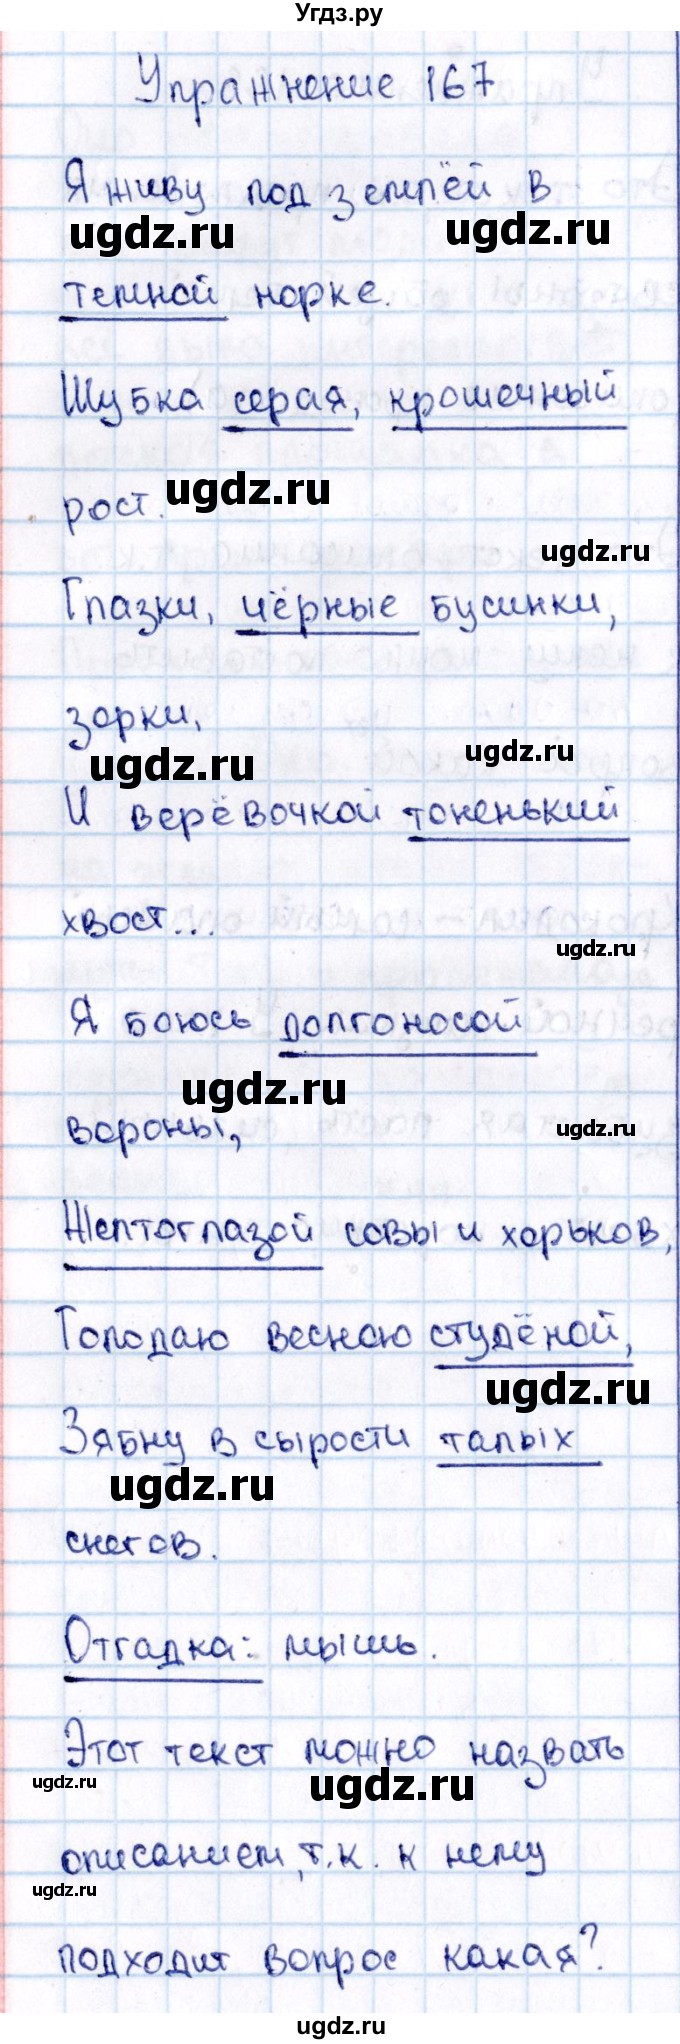 Угдз.ру
Упражнение 167
Я живу под землёй в
ugdz.ru ugdz.ru
темной норке.
Шубка серая, крошечный
ugdz.ru
рост.
ugdz.ru
Глазки, чёрные бусинки,
зорки,
ugdz.ru ugdz.ru
И верёвочкой тоненький
хвост...
ugdz.ru
Я боюсь долгоносой
ugdz.ru
вороны,
ugdz.ru
Желтоглазой совы и хорьков,
Голодаю весною студёной,
ugdz.ru
Зябну в сырости талых
ugdz.ru
снегов.
Отгадка: мышь.
Этот текст можно назвать
ugdz.ru ugdz.ru
описанием, т.к. к нему
ugdz.ru
подходит вопрос какая?
ugdz.ru